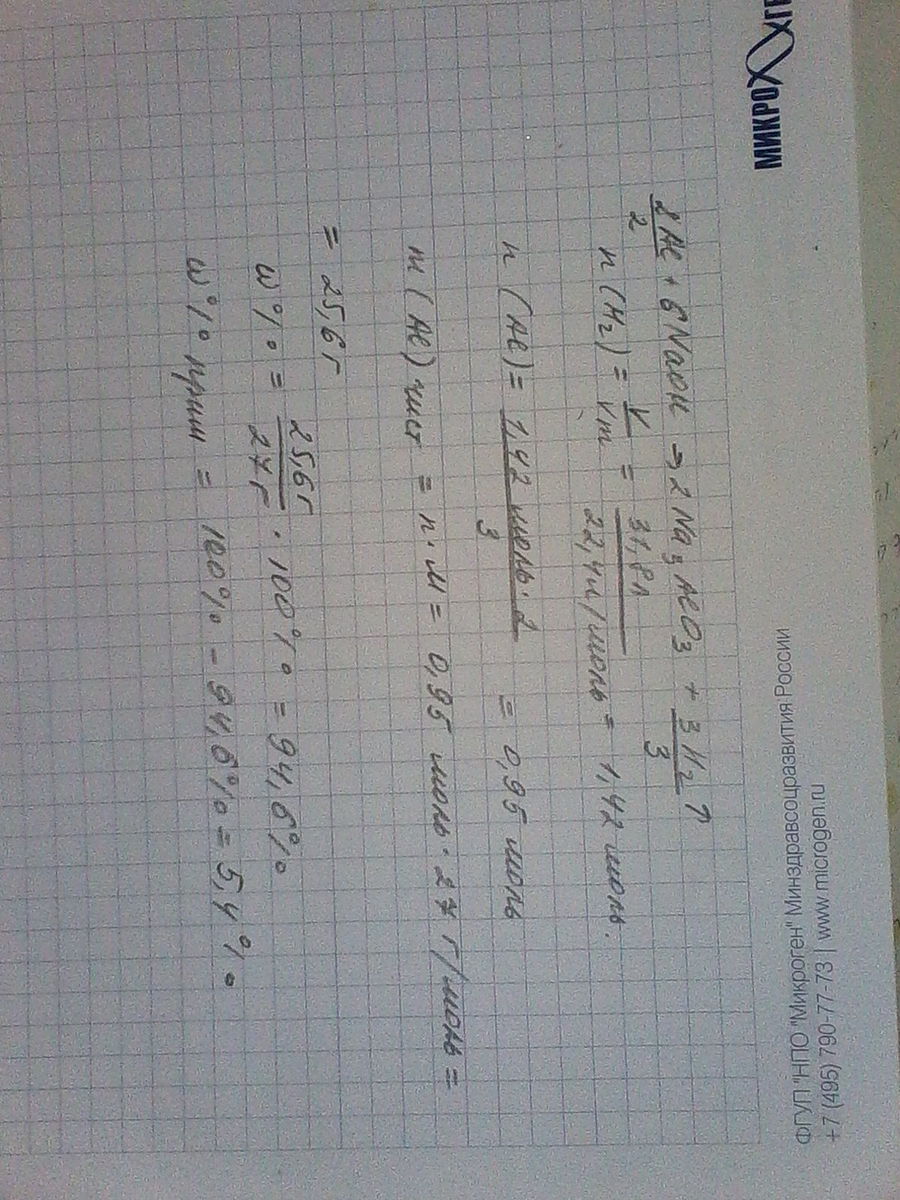 МИКРО ГЕ
2Al + 6NaOH → 2Na3AlO3 + 3H2↑
2 3
n(H2) = V/Vm = 31,8л/22,4л/моль = 1,42 моль.
n(Al) = 1,42 моль·2/3 = 0,95 моль
m(Al)чист = n·M = 0,95 моль·27 г/моль =
= 25,6г
w% = 25,6г/27г · 100% = 94,6%
w% прим = 100% - 94,6% = 5,4%
ФГУП "НПО "Микроген" Минздравсоцразвития России
+7 (495) 790-77-73 | www.microgen.ru